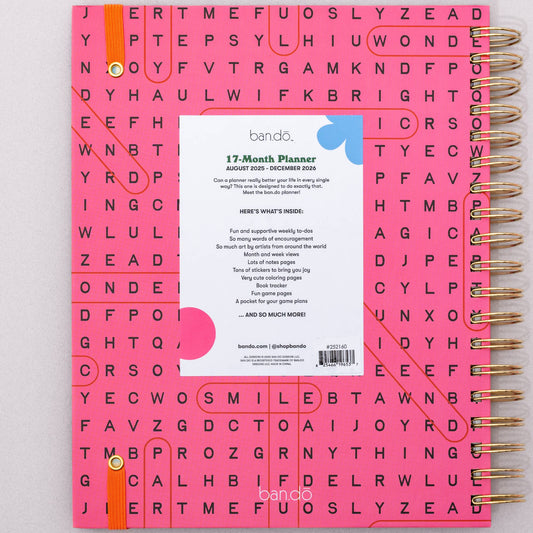 J E R T M E F U O S L Y Z E A D
Y P T E P S Y L H I U W O N D E
N Y O Y F V T R G A M K N D F P C
D Y H A U L W I F K B R I G H T O
E E F H I C R S O
W N B T T Y E C W
Y R D P S P F A V Z
I N G C H T M B P
W L U L A G I C A
Z E A D T D J P E
O N D E C L P
D F P O U N X O
G H T Q A I D Y H
C R S O V E E F
Y E C W O S M I L E B T A W N B
F A V Z G D C T O A I J O Y R D
T M B P R O Z G R N Y T H I N G
G C A L H B I F D E L R W L U E
J E R T M E F U O S L Y Z E A D
ban.dō
17-Month Planner
AUGUST 2025 - DECEMBER 2026
Can a planner really better your life in every single
way? This one is designed to do exactly that.
Meet the ban.do planner!
HERE'S WHAT'S INSIDE:
Fun and supportive weekly to-dos
So many words of encouragement
So much art by artists from around the world
Month and week views
Lots of notes pages
Tons of stickers to bring you joy
Very cute coloring pages
Book tracker
Fun game pages
A pocket for your game plans
... AND SO MUCH MORE!
bando.com | @shopbando
#252160
ban.dō